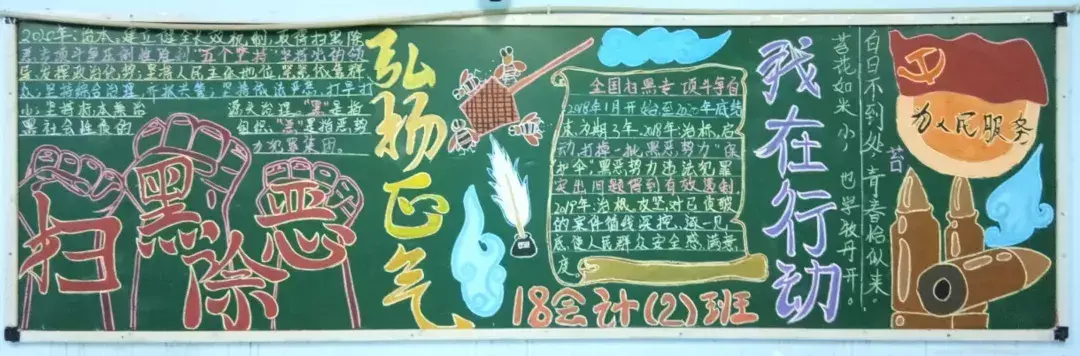 2020年:治本,建立健全长效机制,取得扫黑除
恶专项斗争压倒性胜利。"五个坚持"坚持党的领
导,发挥政治优势;坚持人民主体地位,紧紧依靠群
众;坚持综合治理、齐抓共管;坚持依法严惩、打早打
小;坚持标本兼治 源头治理。"黑"是指
黑社会性质的 组织,"恶"是指恶势
力犯罪集团。
扫黑除恶
弘扬正气
全国扫黑专项斗争自
2018年1月开始至2020年底结
束,为期三年。2018年:治标,启
动,打掉一批黑恶势力"保
护伞",黑恶势力违法犯罪
突出问题得到有效遏制
2019年:治根,攻坚,对已侦破
的案件循线深挖,逐一见
底,使人民群众安全感,满意
度。
18会计(2)班
我在行动
白日不到处,青春恰似来。
苔花如米小,也学牡丹开。
苔
为人民服务